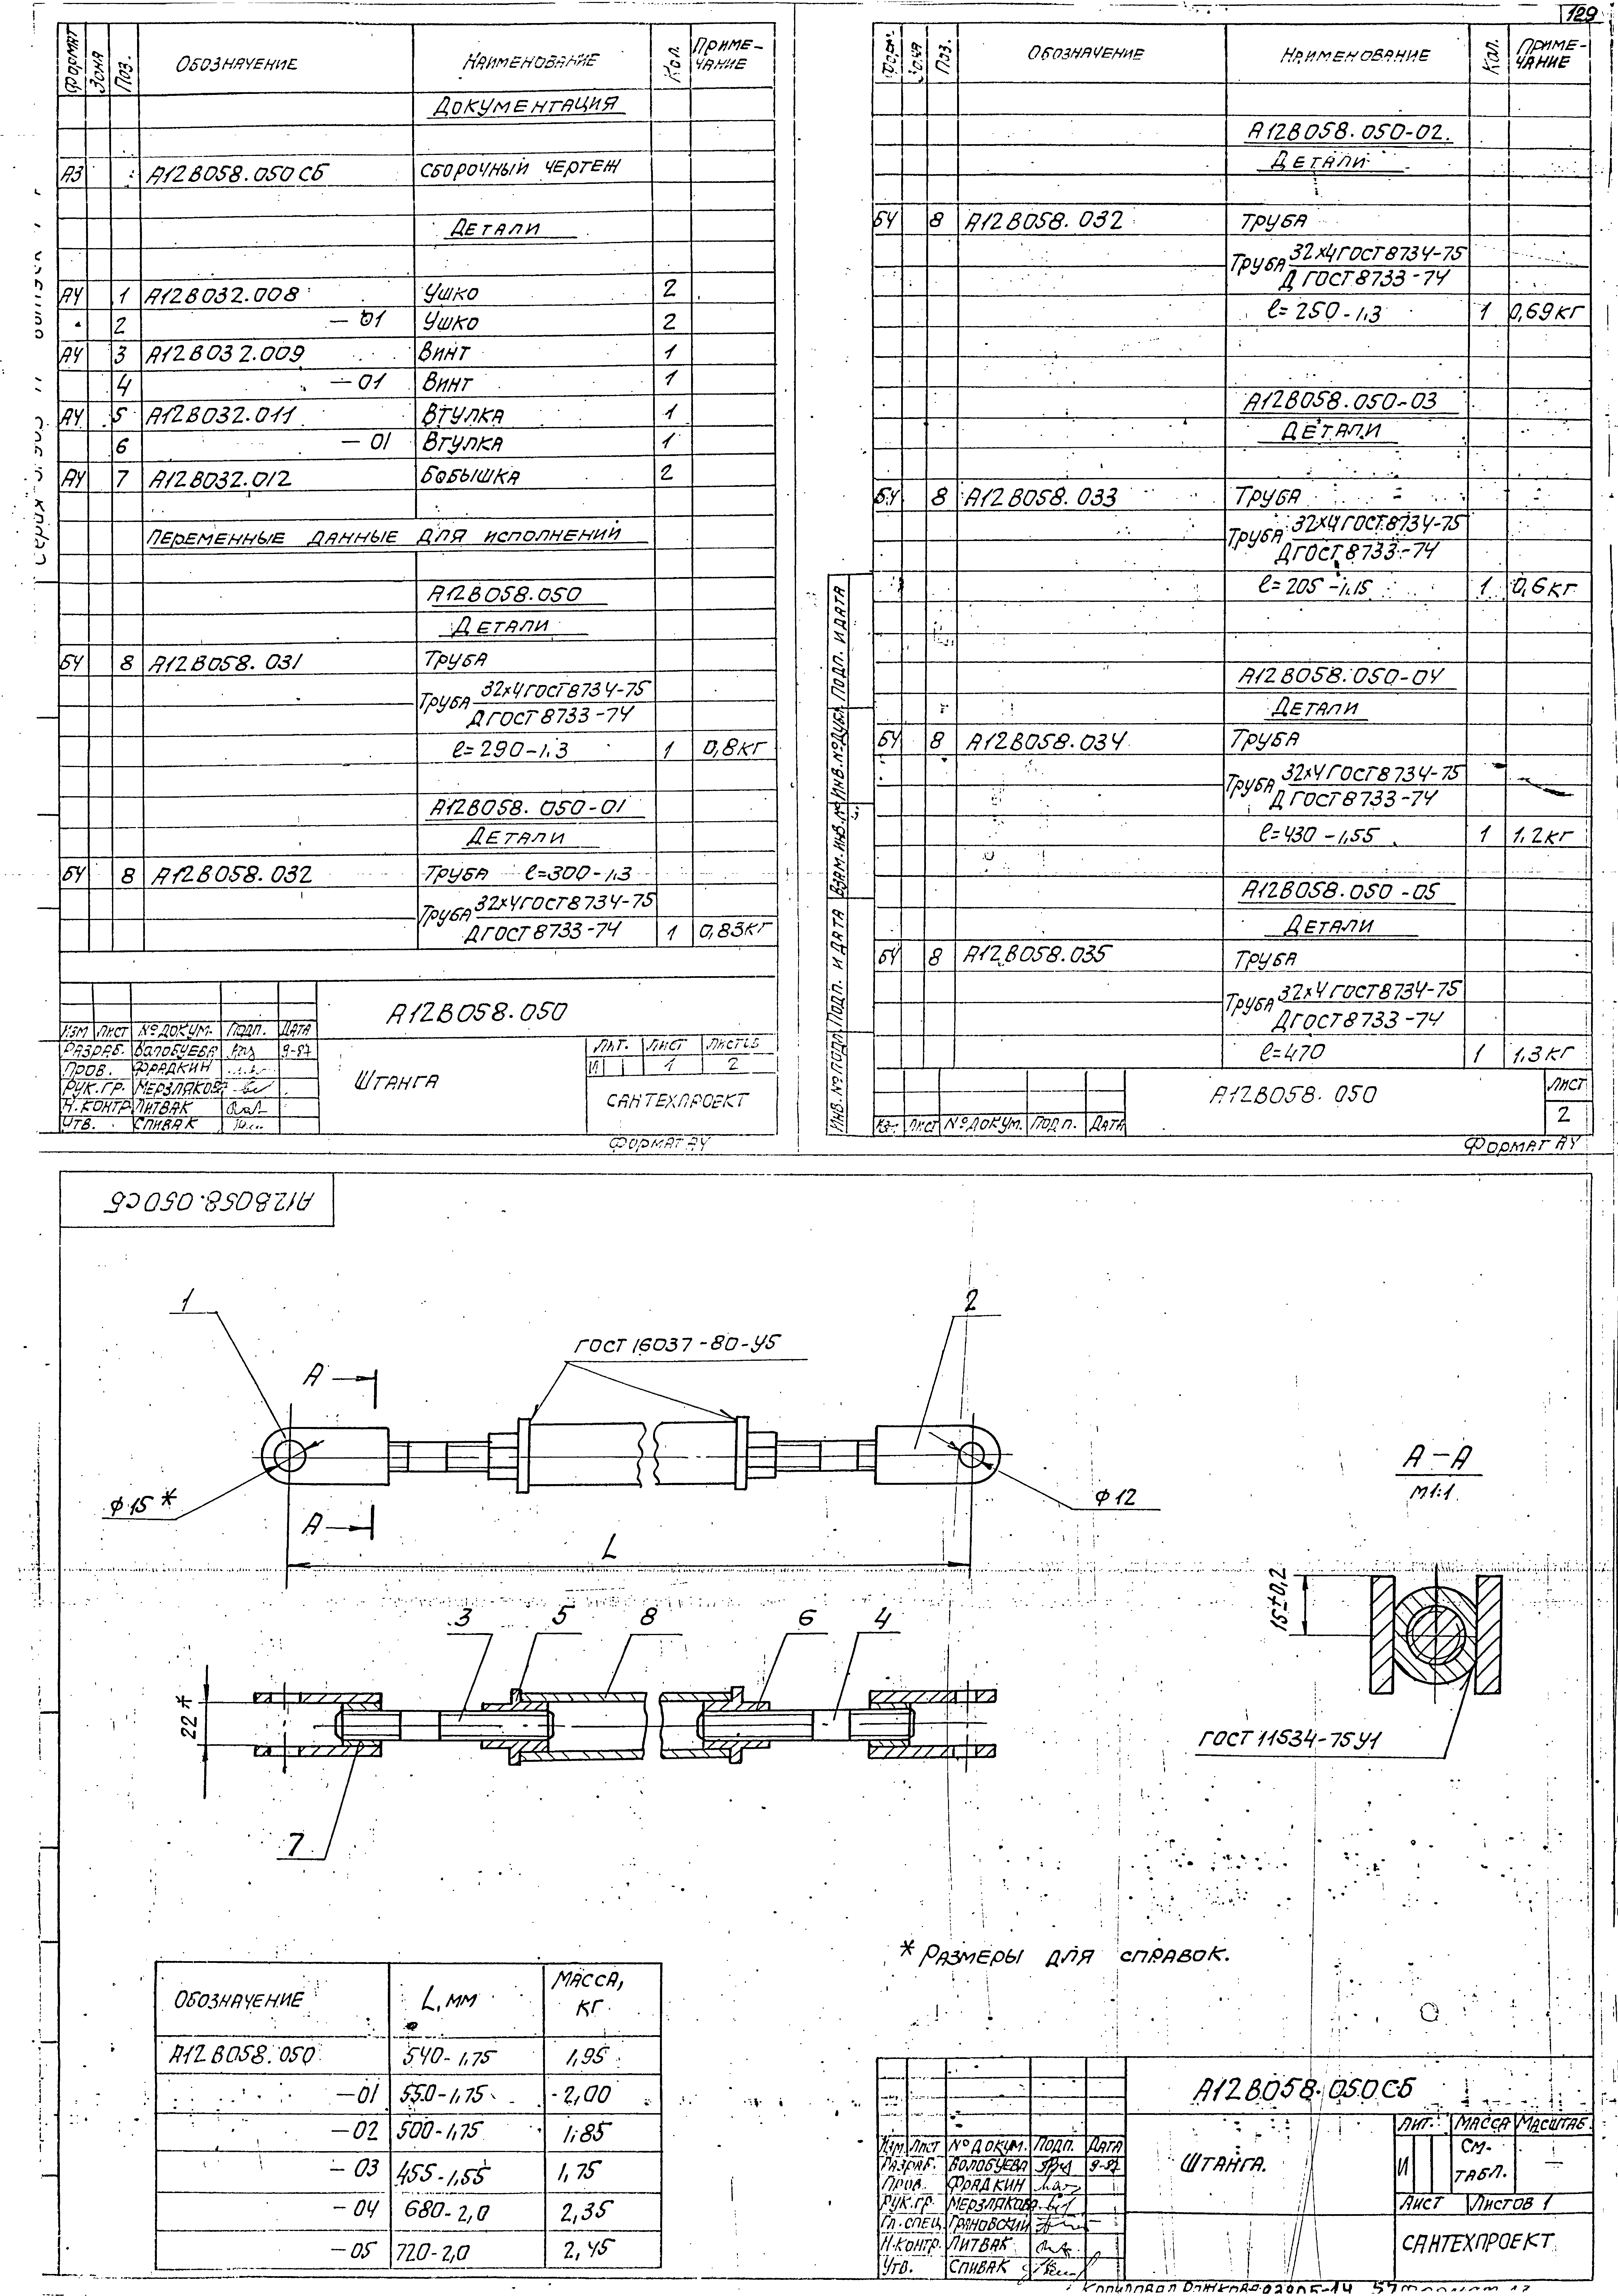 129
Формат Зона Поз. Обозначение Наименование Кол. Примечание
Документация
А3 А12В058.050 СБ Сборочный чертеж
Детали
А4 1 А12В032.008 Ушко 2
2 -01 Ушко 2
А4 3 А12В032.009 Винт 1
4 -01 Винт 1
А4 5 А12В032.011 Втулка 1
6 -01 Втулка 1
А4 7 А12В032.012 Бобышка 2
Переменные данные для исполнений
А12В058.050
Детали
БЧ 8 А12В058.031 Труба
Труба 32х4 ГОСТ 8734-75
Д ГОСТ 8733-74
ℓ=290-1,3 1 0,8кг
А12В058.050-01
Детали
БЧ 8 А12В058.032 Труба ℓ=300-1,3
Труба 32х4 ГОСТ 8734-75
Д ГОСТ 8733-74 1 0,83кг
А12В058.050
Изм Лист № докум. Подп. Дата
Разраб. Волобуева 9-87
Пров. Фрадкин
Рук.гр. Мерзлякова
Н.контр. Литвак
Утв. Спивак
Штанга
Лит. Лист Листов
И 1 2
САНТЕХПРОЕКТ
Формат А4
Форм. Зона Поз. Обозначение Наименование Кол. Примечание
А12В058.050-02.
Детали
БЧ 8 А12В058.032 Труба
Труба 32х4 ГОСТ 8734-75
Д ГОСТ 8733-74
ℓ=250-1,3 1 0,69кг
А12В058.050-03
Детали
БЧ 8 А12В058.033 Труба
Труба 32х4 ГОСТ 8734-75
Д ГОСТ 8733-74
ℓ=205-1,15 1 0,6кг
А12В058.050-04
Детали
БЧ 8 А12В058.034 Труба
Труба 32х4 ГОСТ 8734-75
Д ГОСТ 8733-74
ℓ=430-1,55 1 1,2кг
А12В058.050-05
Детали
БЧ 8 А12В058.035 Труба
Труба 32х4 ГОСТ 8734-75
Д ГОСТ 8733-74
ℓ=470 1 1,3кг
Инв. № подл. Подп. и дата Взам. инв. № Инв. № дубл. Подп. и дата
Изм. Лист № докум. Подп. Дата
А12В058.050
Лист
2
Формат А4
А12В058.050СБ
1
2
ГОСТ 16037-80-У5
А
ϕ15*
ϕ12
А
L
А-А
М1:1
3 5 8 6 4
22*
7
15±0,2
ГОСТ 11534-75 У1
* Размеры для справок.
Обозначение L, мм Масса, кг
А12В058.050 540-1,75 1,95
-01 550-1,75 2,00
-02 500-1,75 1,85
-03 455-1,55 1,75
-04 680-2,0 2,35
-05 720-2,0 2,45
А12В058.050СБ
Изм. Лист № докум. Подп. Дата
Разраб. Волобуева 9-87
Пров. Фрадкин
Рук.гр. Мерзлякова
Гл.спец. Грановский
Н.контр. Литвак
Утв. Спивак
Штанга.
Лит. Масса Масштаб.
И см. табл. —
Лист Листов 1
САНТЕХПРОЕКТ